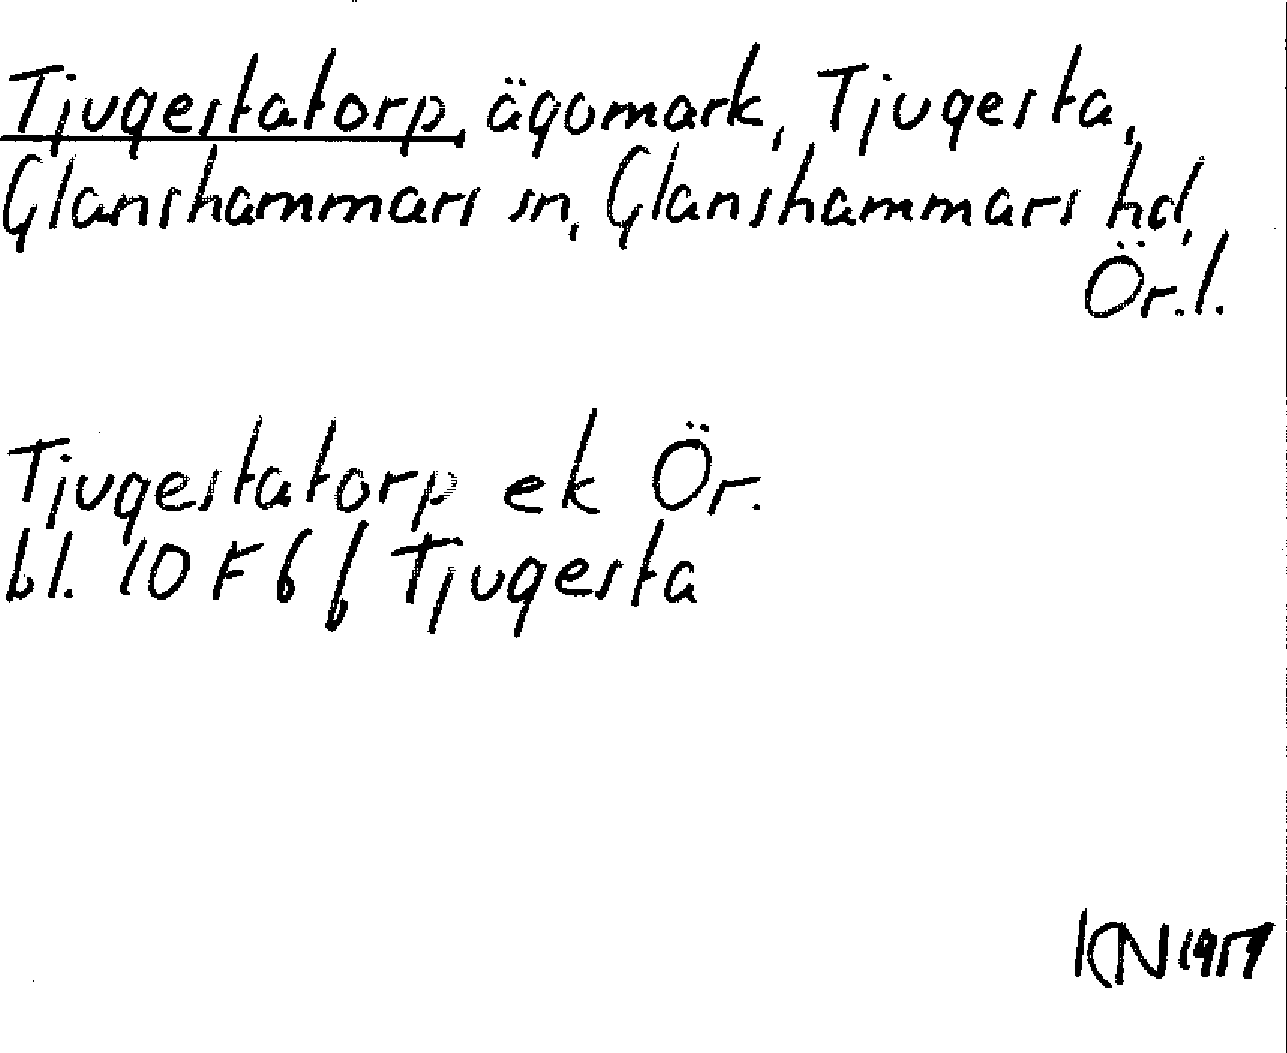 Tjugestatorp, ägomark, Tjugesta,
Glanshammars sn, Glanshammars hd,
Ör.l.
Tjugestatorp ek Ör.
bl. 10 F 6 f Tjugesta